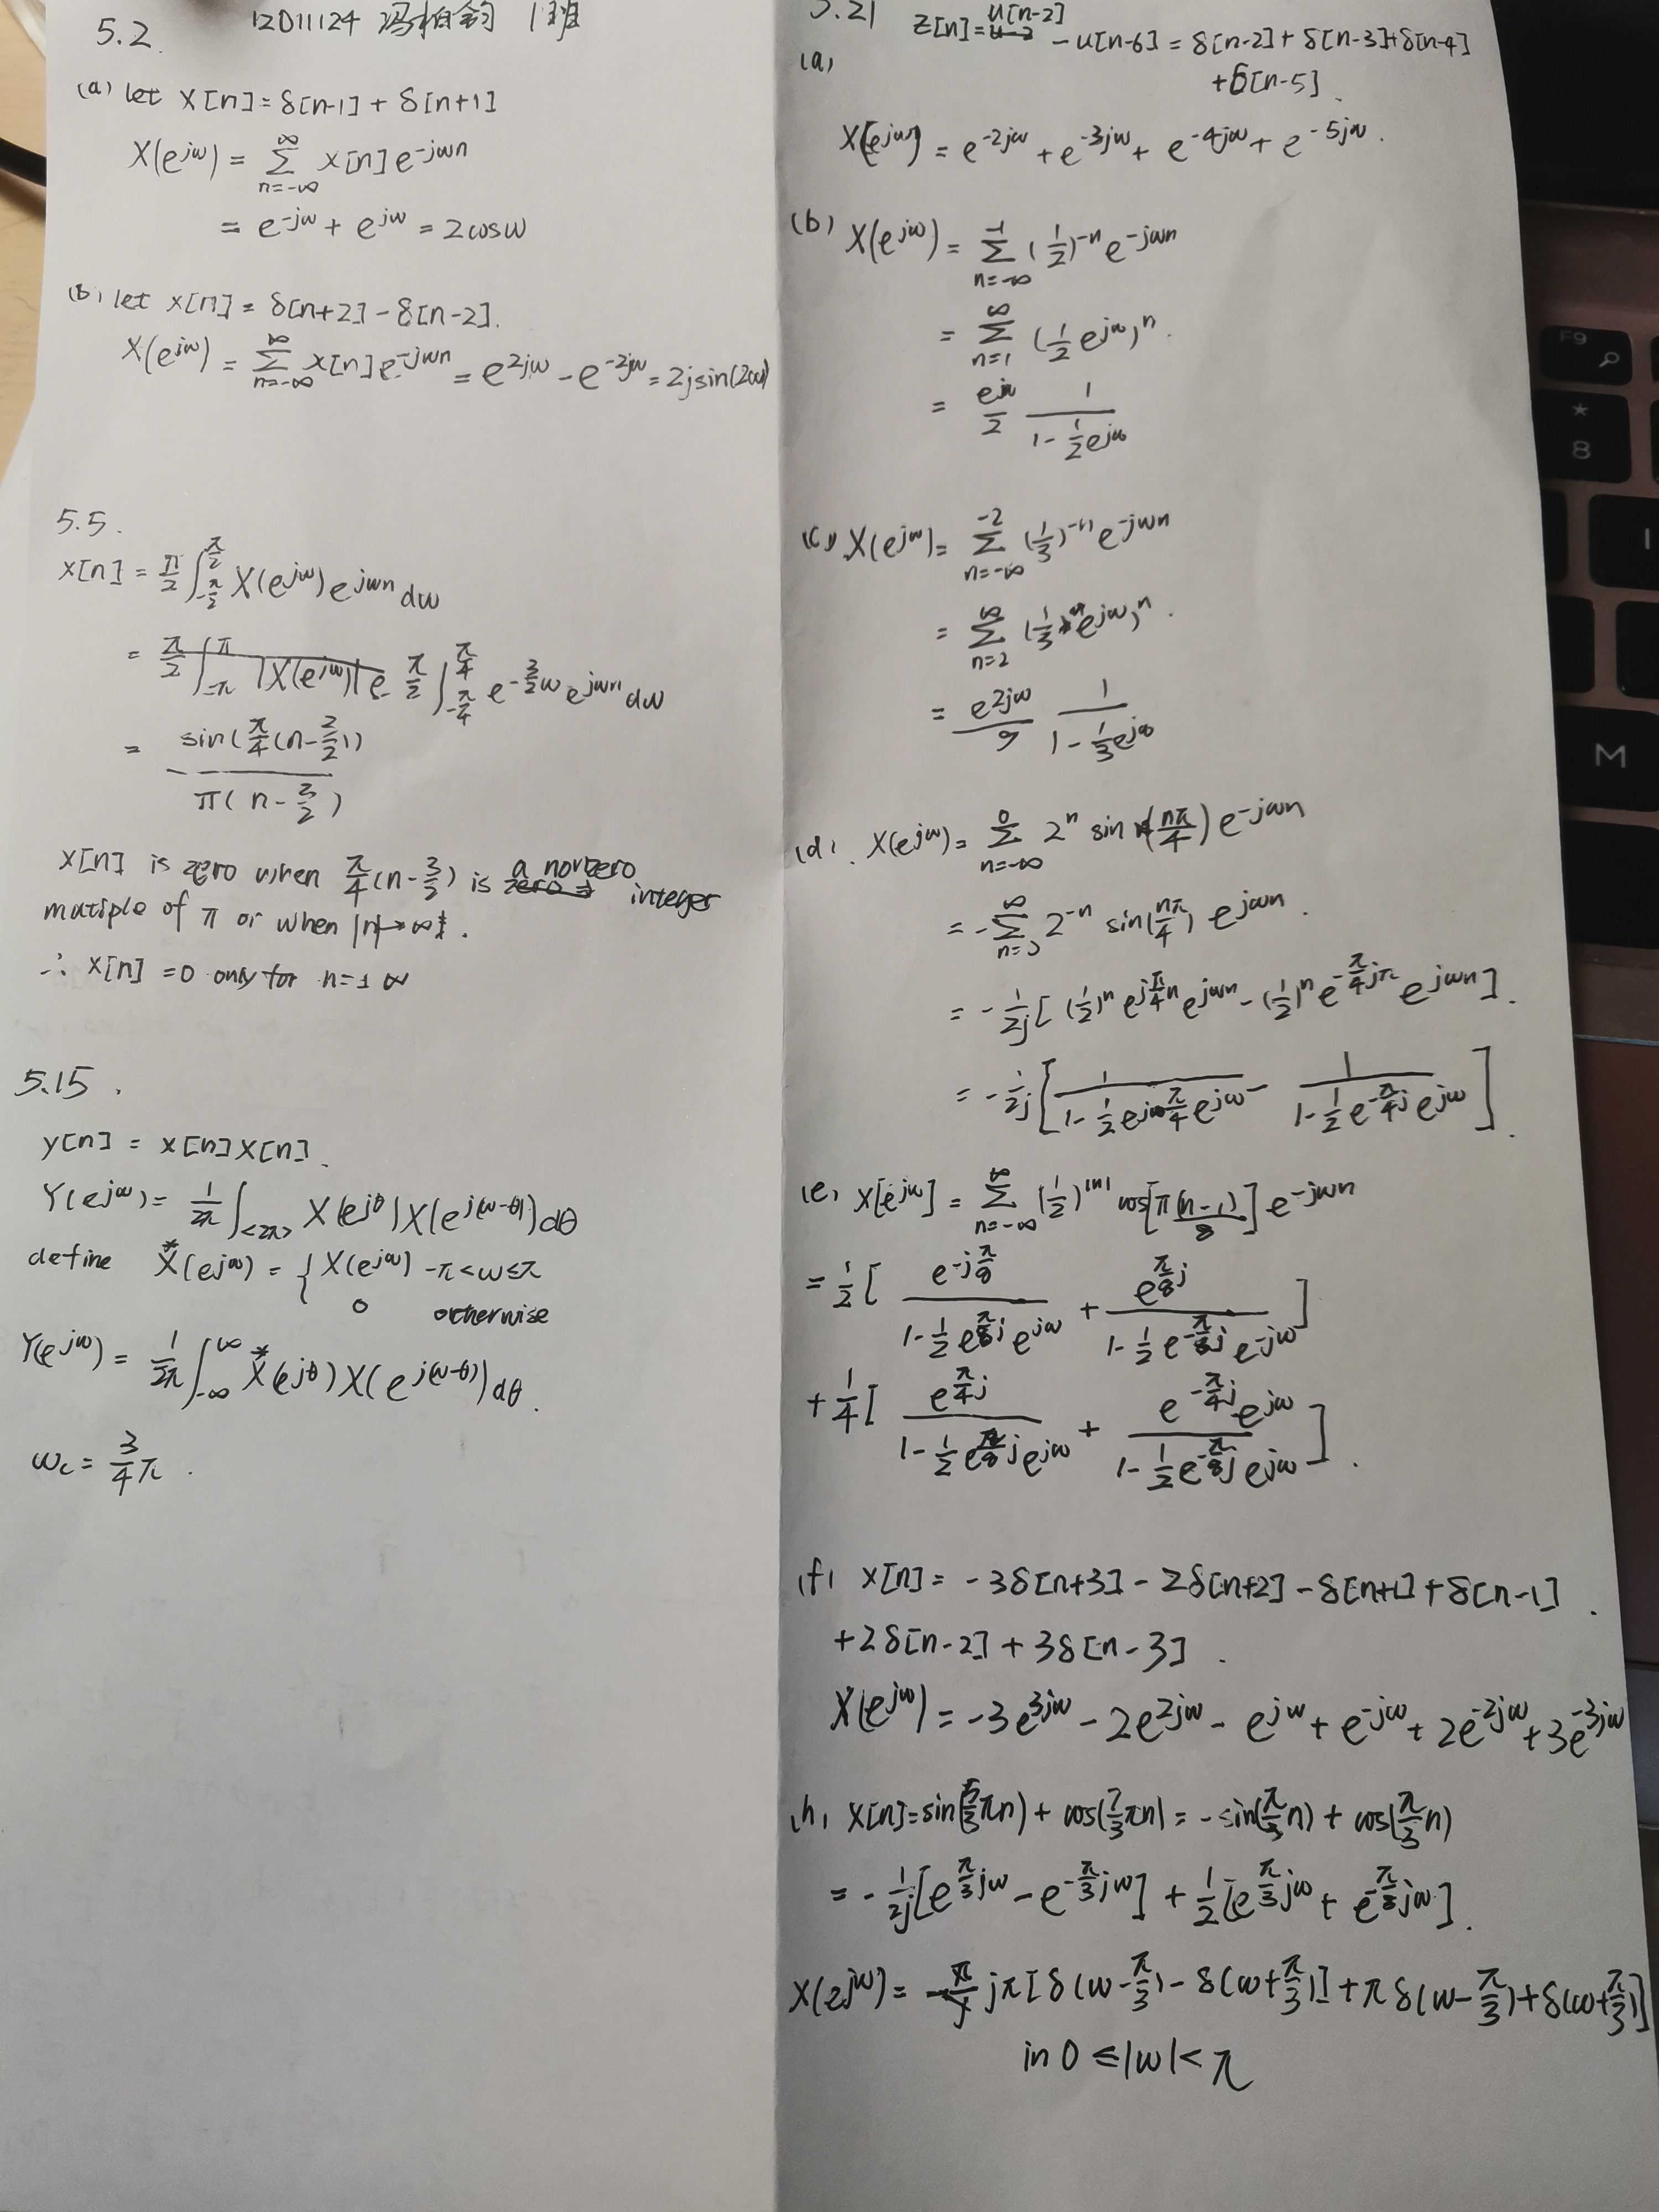 12011124 冯柏钧 1班
5.2.
(a) let x[n] = δ[n-1] + δ[n+1]
X(e^{jω}) = ∑_{n=-∞}^{∞} x[n] e^{-jωn}
= e^{-jω} + e^{jω} = 2cosω
(b) let x[n] = δ[n+2] - δ[n-2].
X(e^{jω}) = ∑_{n=-∞}^{∞} x[n] e^{-jωn} = e^{2jω} - e^{-2jω} = 2jsin(2ω)
5.5.
x[n] = π/2 ∫_{-π/2}^{π/2} X(e^{jω}) e^{jωn} dω
= π/2 ∫_{-π/4}^{π/4} e^{-3/2 ω} e^{jωn} dω
= sin(π/4(n-3/2)) / π(n-3/2)
x[n] is zero when π/4(n-3/2) is a nonzero integer
multiple of π or when |n|→∞.
∴ x[n] = 0 only for n=±∞
5.15.
y[n] = x[n]x[n].
Y(e^{jω}) = 1/2π ∫_{<2π>} X(e^{jθ}) X(e^{j(ω-θ)}) dθ
define X^*(e^{jω}) = { X(e^{jω}) -π<ω≤π
0 otherwise
Y(e^{jω}) = 1/2π ∫_{-∞}^{∞} X^*(e^{jθ}) X(e^{j(ω-θ)}) dθ.
ω_c = 3/4 π.
5.21
z[n] = u[n-2] - u[n-6] = δ[n-2] + δ[n-3] + δ[n-4]
(a)
+ δ[n-5].
X(e^{jω}) = e^{-2jω} + e^{-3jω} + e^{-4jω} + e^{-5jω}.
(b) X(e^{jω}) = ∑_{n=-∞}^{-1} (1/2)^{-n} e^{-jωn}
= ∑_{n=1}^{∞} (1/2 e^{jω})^n.
= e^{jω}/2 1/(1 - 1/2 e^{jω})
(c) X(e^{jω}) = ∑_{n=-∞}^{-2} (1/3)^{-n} e^{-jωn}
= ∑_{n=2}^{∞} (1/3 e^{jω})^n.
= e^{2jω}/9 1/(1 - 1/3 e^{jω})
(d). X(e^{jω}) = ∑_{n=-∞}^{0} 2^n sin(nπ/4) e^{-jωn}
= -∑_{n=0}^{∞} 2^{-n} sin(nπ/4) e^{jωn}.
= -1/2j [(1/2)^n e^{jπ/4 n} e^{jωn} - (1/2)^n e^{-π/4 jn} e^{jωn}].
= -1/2j [1/(1 - 1/2 e^{jπ/4} e^{jω}) - 1/(1 - 1/2 e^{-π/4 j} e^{jω})].
(e) X[e^{jω}] = ∑_{n=-∞}^{∞} (1/2)^{|n|} cos[π(n-1)/8] e^{-jωn}
= 1/2 [e^{-jπ/8}/(1 - 1/2 e^{π/8 j} e^{jω}) + e^{π/8 j}/(1 - 1/2 e^{-π/8 j} e^{-jω})]
+ 1/4 [e^{π/4 j}/(1 - 1/2 e^{π/8 j} e^{jω}) + e^{-π/4 j} e^{jω}/(1 - 1/2 e^{-π/8 j} e^{jω})].
(f) x[n] = -3δ[n+3] - 2δ[n+2] - δ[n+1] + δ[n-1].
+2δ[n-2] + 3δ[n-3].
X(e^{jω}) = -3e^{3jω} - 2e^{2jω} - e^{jω} + e^{-jω} + 2e^{-2jω} + 3e^{-3jω}
(h) x[n] = sin(5/3 πn) + cos(7/3 πn) = -sin(π/3 n) + cos(π/3 n)
= -1/2j [e^{π/3 jω} - e^{-π/3 jω}] + 1/2 [e^{π/3 jω} + e^{-π/3 jω}].
X(e^{jω}) = - jπ[δ(ω-π/3) - δ(ω+π/3)] + π δ(ω-π/3) + δ(ω+π/3)]
in 0 ≤ |ω| < π
F9
*
8
I
M